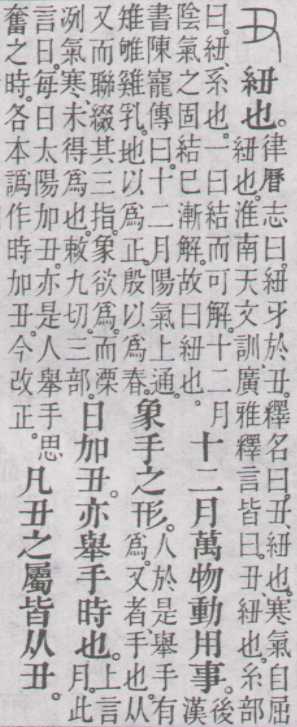 丑 紐也。
律曆志曰。紐牙於丑。釋名曰。丑、紐也。寒氣自屈
紐也。淮南天文訓、廣雅釋言皆曰。丑、紐也。糸部
曰。紐、系也。一曰結而可解。十二月
陰氣之固結已漸解。故曰紐也。
十二月萬物動用事。
後
漢
書陳寵傳曰。十二月陽氣上通。
雉雊雞乳。地以爲正。殷以爲春。
象手之形。
人於是舉手有
爲。又者、手也。从
又而聯綴其三指。象欲爲。而凓
冽氣寒。未得爲也。敕九切。三部。
日加丑。亦舉手時也。
上言
月。此
言日。每日太陽加丑。亦是人舉手思
奮之時。各本譌作時加丑。今改正。
凡丑之屬皆从丑。